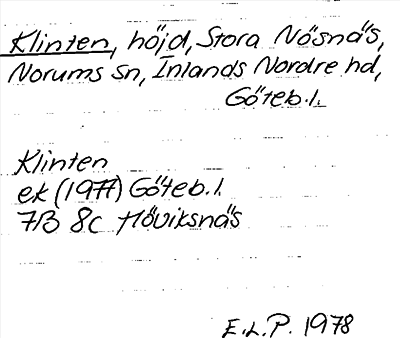 Klinten, höjd, Stora Nösnäs,
Norums sn, Inlands Nordre hd,
Göteb. l.
Klinten
ek (1977) Göteb. l.
7B 8c Höviksnäs
E.L.P. 1978